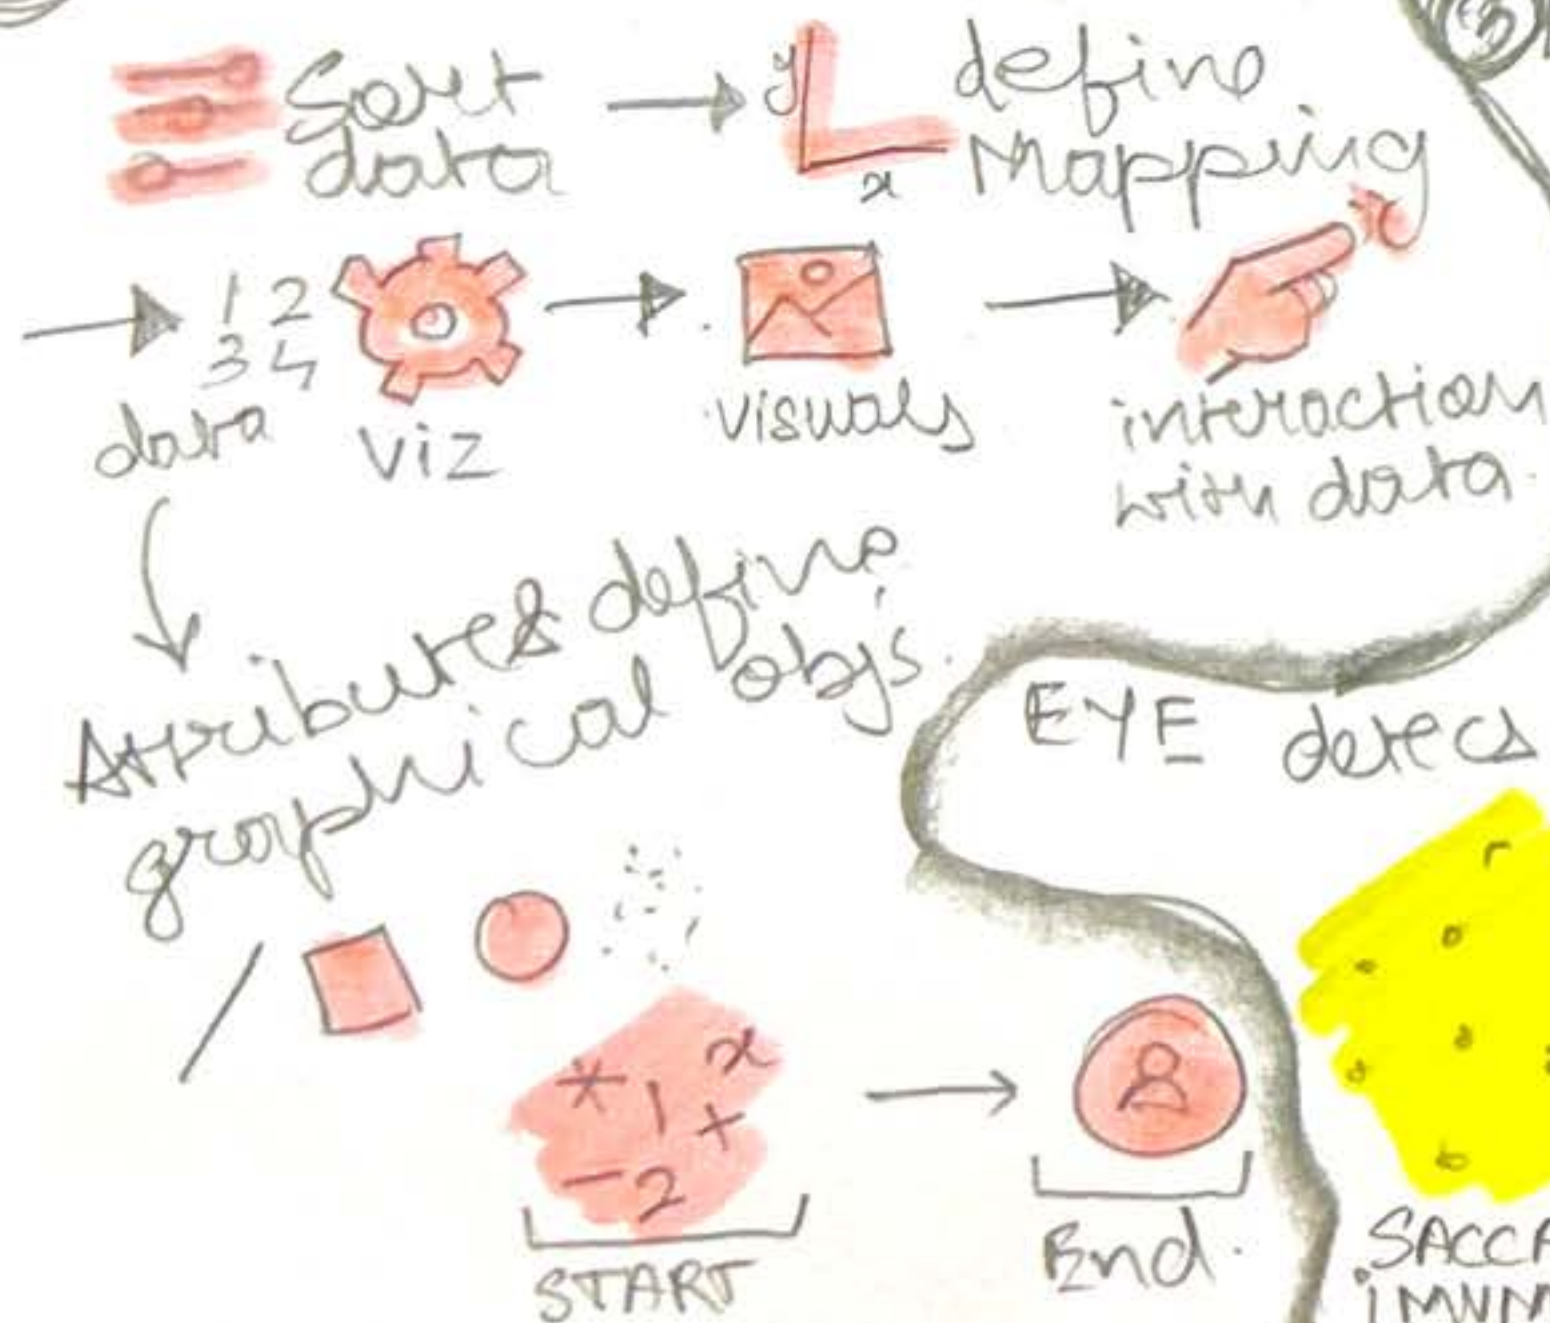 ③
Sort
data
y
x
define
Mapping
1 2
3 4
data
viz
visuals
interaction
with data.
Attributes define
graphical objs.
EYE detecs
* 1 x
+
- 2
START
End.